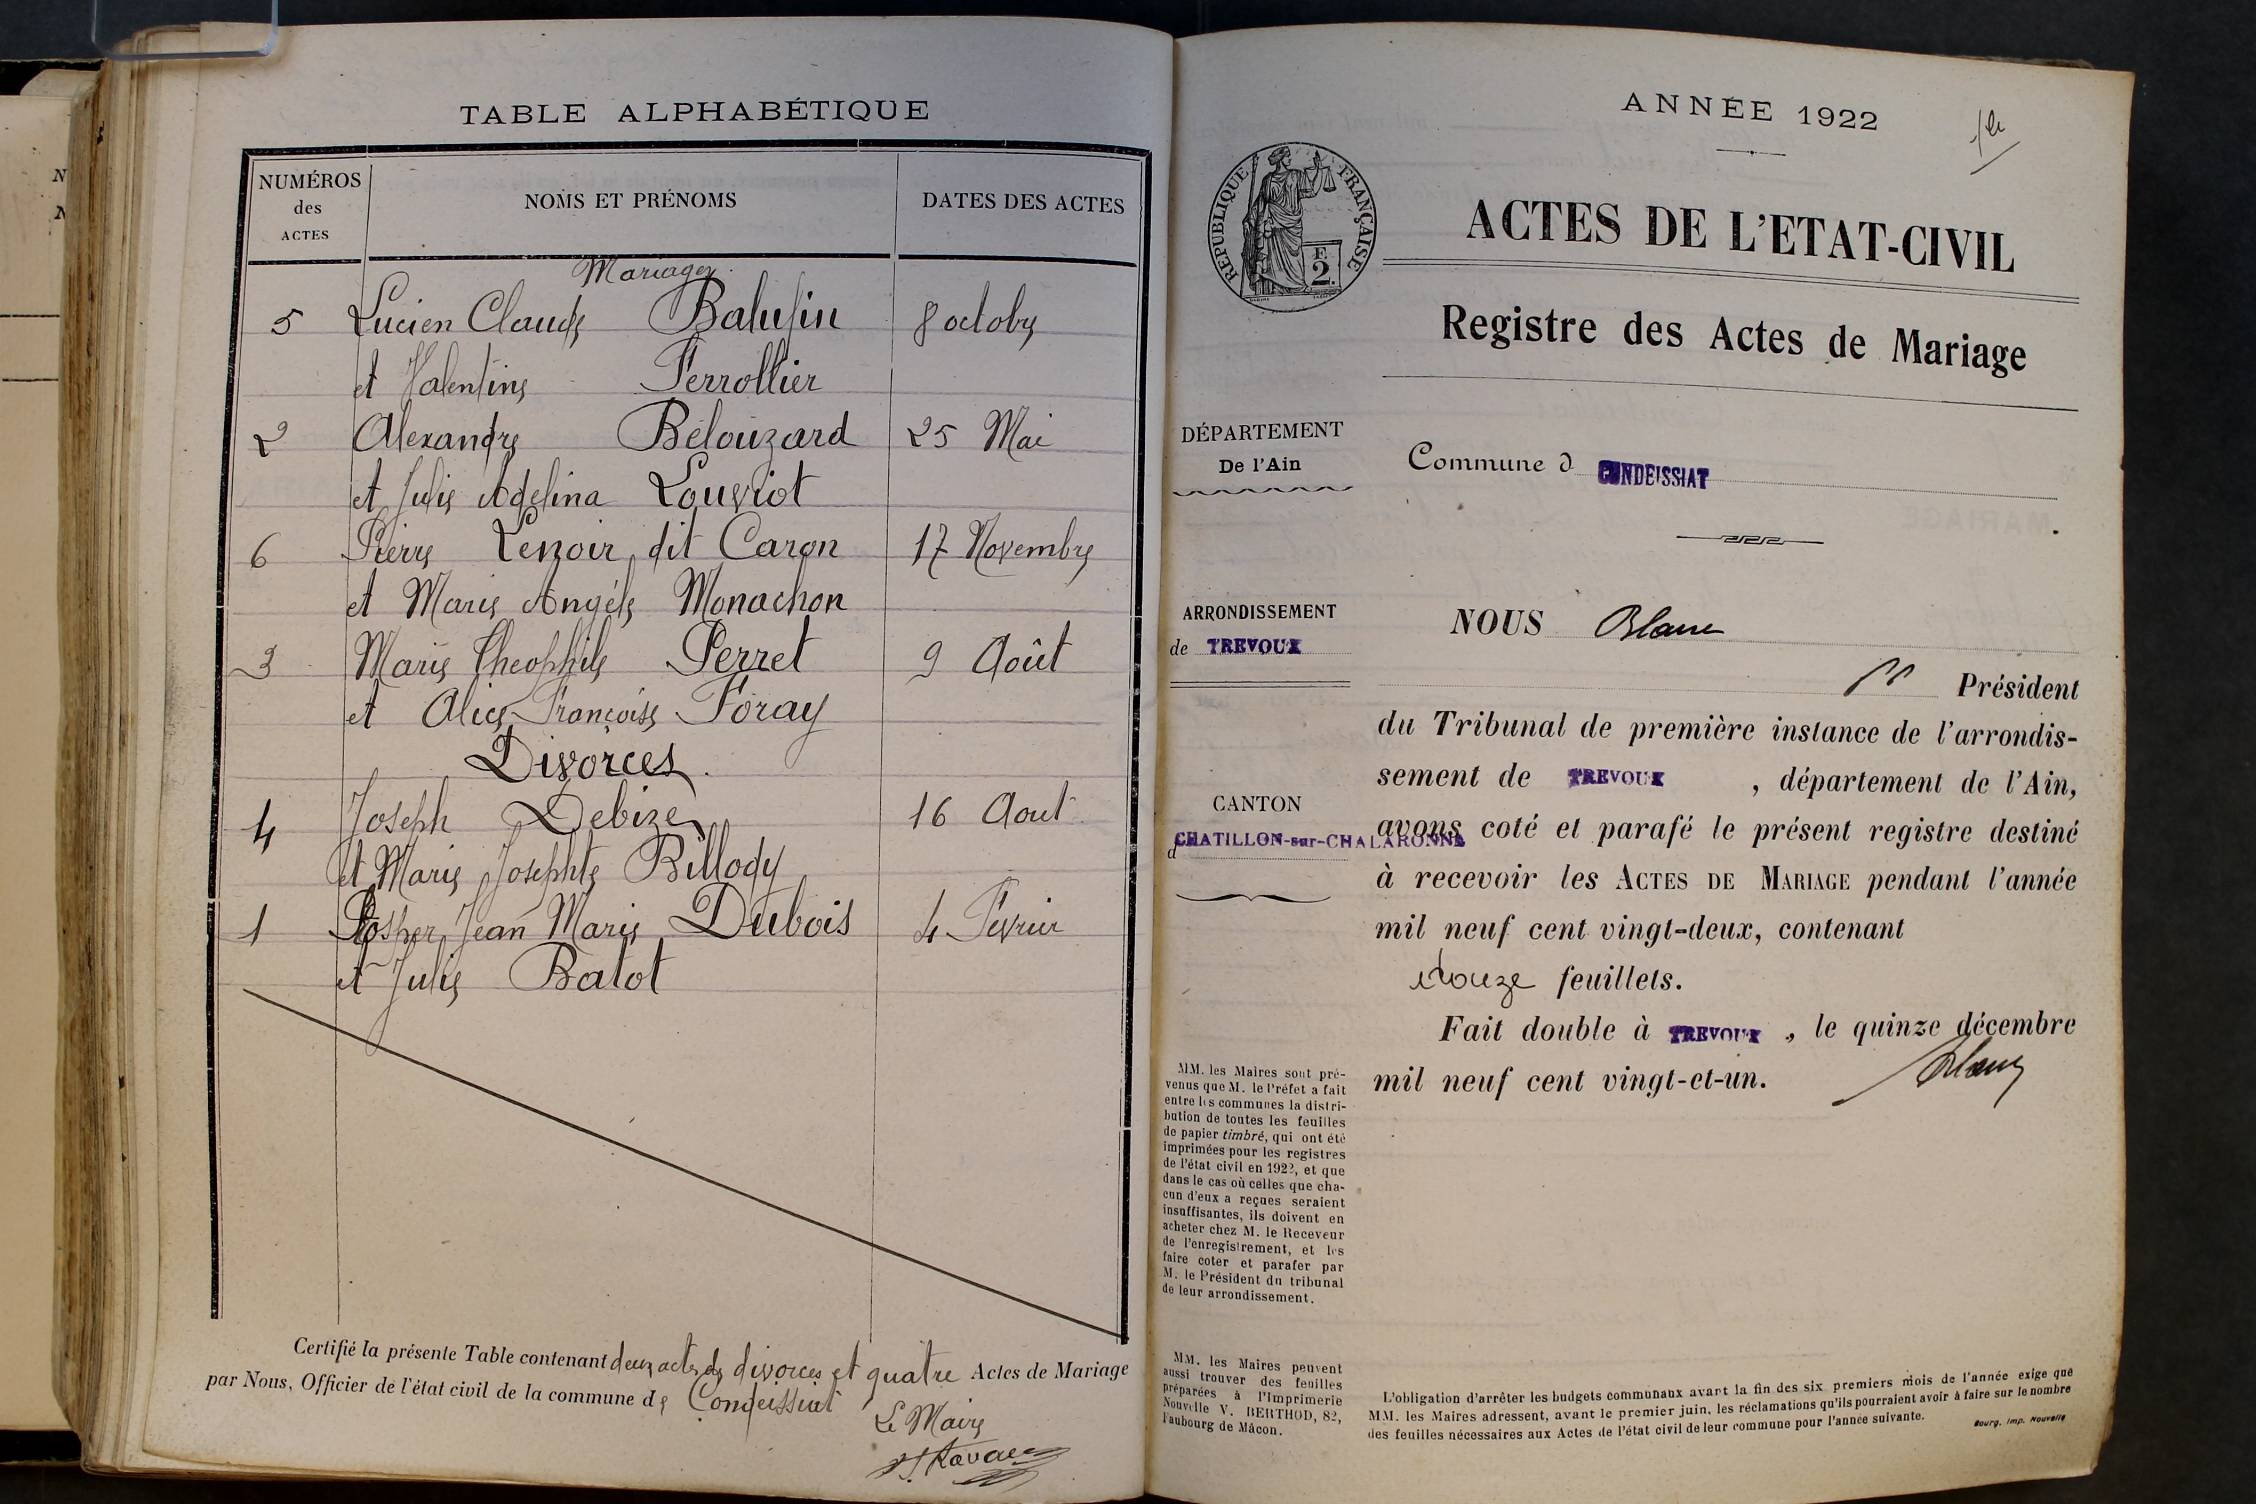 TABLE ALPHABÉTIQUE
NUMÉROS
des
ACTES
NOMS ET PRÉNOMS
DATES DES ACTES
Mariages
5 Lucien Claude Balufin 8 octobre
et Valentine Ferrollier
2 Alexandre Belouzard 25 Mai
et Julie Adelina Louvriot
6 Pierre Lenoir dit Caron 17 Novembre
et Marie Angèle Monachon
3 Marie Theophile Perret 9 Août
et Alice Françoise Foray
Divorces.
4 Joseph Debize 16 Aout
et Marie Josephte Billody
1 Prosper Jean Marie Dubois 4 Fevrier
et Julie Balot
Certifié la présente Table contenant deux actes de divorces et quatre Actes de Mariage
par Nous, Officier de l'état civil de la commune de Condeissiat
Le Maire
ANNÉE 1922
1er
RÉPUBLIQUE FRANÇAISE
F.
2.
ACTES DE L'ETAT-CIVIL
Registre des Actes de Mariage
DÉPARTEMENT
De l'Ain
Commune d CONDEISSIAT
ARRONDISSEMENT
de TREVOUX
CANTON
d CHATILLON-sur-CHALARONNE
NOUS Blanc
Président
du Tribunal de première instance de l'arrondis-
sement de TREVOUX, département de l'Ain,
avons coté et parafé le présent registre destiné
à recevoir les ACTES DE MARIAGE pendant l'année
mil neuf cent vingt-deux, contenant
douze feuillets.
Fait double à TREVOUX, le quinze décembre
mil neuf cent vingt-et-un.
Blanc
MM. les Maires sont pré-
venus que M. le Préfet a fait
entre les communes la distri-
bution de toutes les feuilles
de papier timbré, qui ont été
imprimées pour les registres
de l'état civil en 1922, et que
dans le cas où celles que cha-
cun d'eux a reçues seraient
insuffisantes, ils doivent en
acheter chez M. le Receveur
de l'enregistrement, et les
faire coter et parafer par
M. le Président du tribunal
de leur arrondissement.
MM. les Maires peuvent
aussi trouver des feuilles
préparées à l'Imprimerie
Nouvelle V. BERTHOD, 82,
faubourg de Mâcon.
L'obligation d'arrêter les budgets communaux avant la fin des six premiers mois de l'année exige que
MM. les Maires adressent, avant le premier juin, les réclamations qu'ils pourraient avoir à faire sur le nombre
des feuilles nécessaires aux Actes de l'état civil de leur commune pour l'année suivante.
Bourg, Imp. Nouvelle